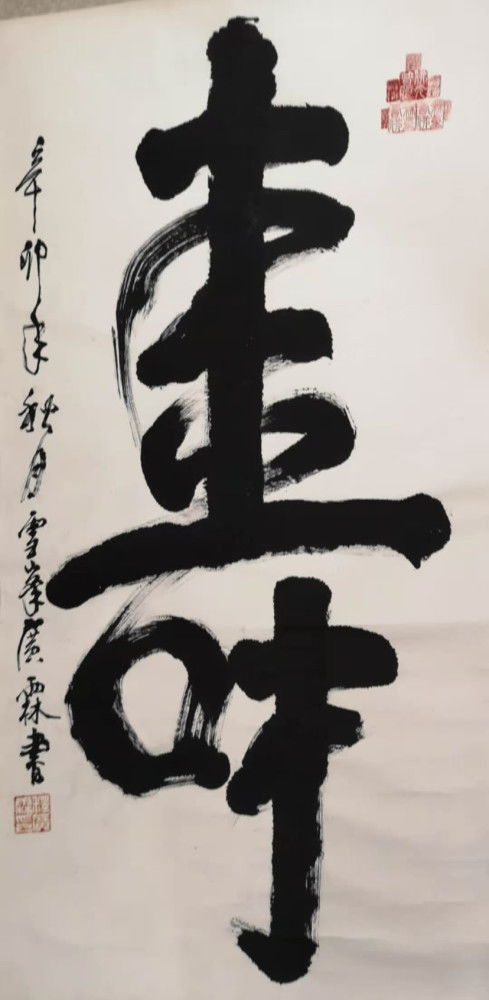 壽
辛卯年秋月雪峯廣霖書